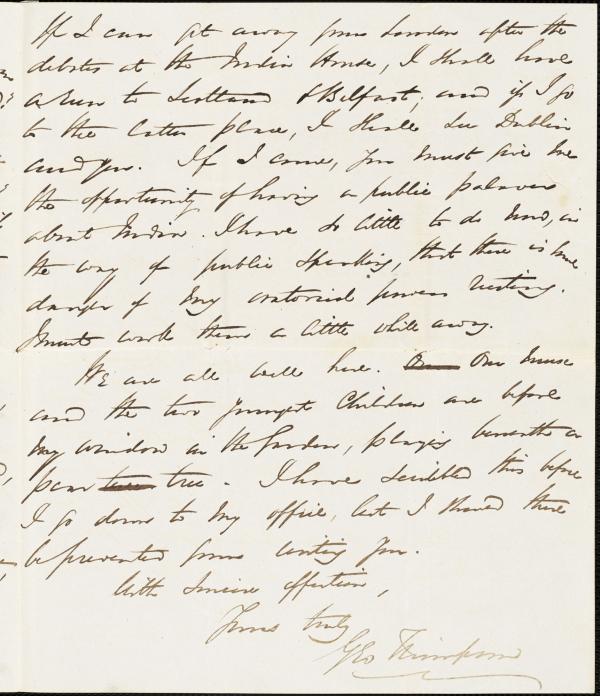 If I can get away from London after the
debates at the India House, I shall have
a run to Scotland & Belfast; and if I go
to the latter place, I shall see Dublin
and you. If I come, you must give me
the opportunity of having a public palaver
about India. I have so little to do now, in
the way of public speaking, that there is some
danger of my oratorical powers rusting.
I must work them a little while away.
We are all well here. Our Our nurse
and the two youngest children are before
my window in the garden, playing beneath a
pear tree tree. I have scribbled this before
I go down to my office, lest I should there
be prevented from writing you.
With sincere affection,
Yours truly
Geo Thompson